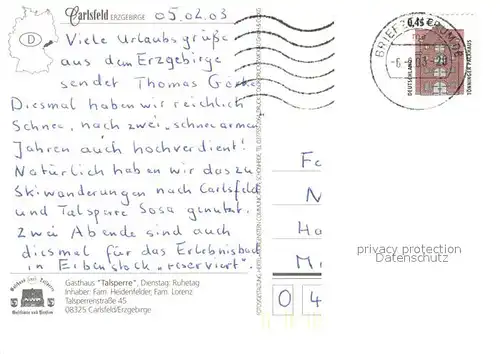 Carlsfeld ERZGEBIRGE
05.02.03
D
Viele Urlaubsgrüße
aus dem Erzgebirge
sendet Thomas
Diesmal haben wir reichlich
Schnee, nach zwei "schneearmen"
Jahren auch hochverdient!
Natürlich haben wir das zu
Skiwanderungen nach Carlsfeld
und Talsperre Sosa genutzt.
Zwei Abende sind auch
diesmal für das Erlebnisbad
in Eibenstock "reserviert".
Gasthaus "Talsperre", Dienstag: Ruhetag
Inhaber: Fam. Heidenfelder, Fam. Lorenz
Talsperrenstraße 45
08325 Carlsfeld/Erzgebirge
0,45 €
DEUTSCHLAND
TÖNNINGER PACKHAUS
privacy protection
Datenschutz
0 4